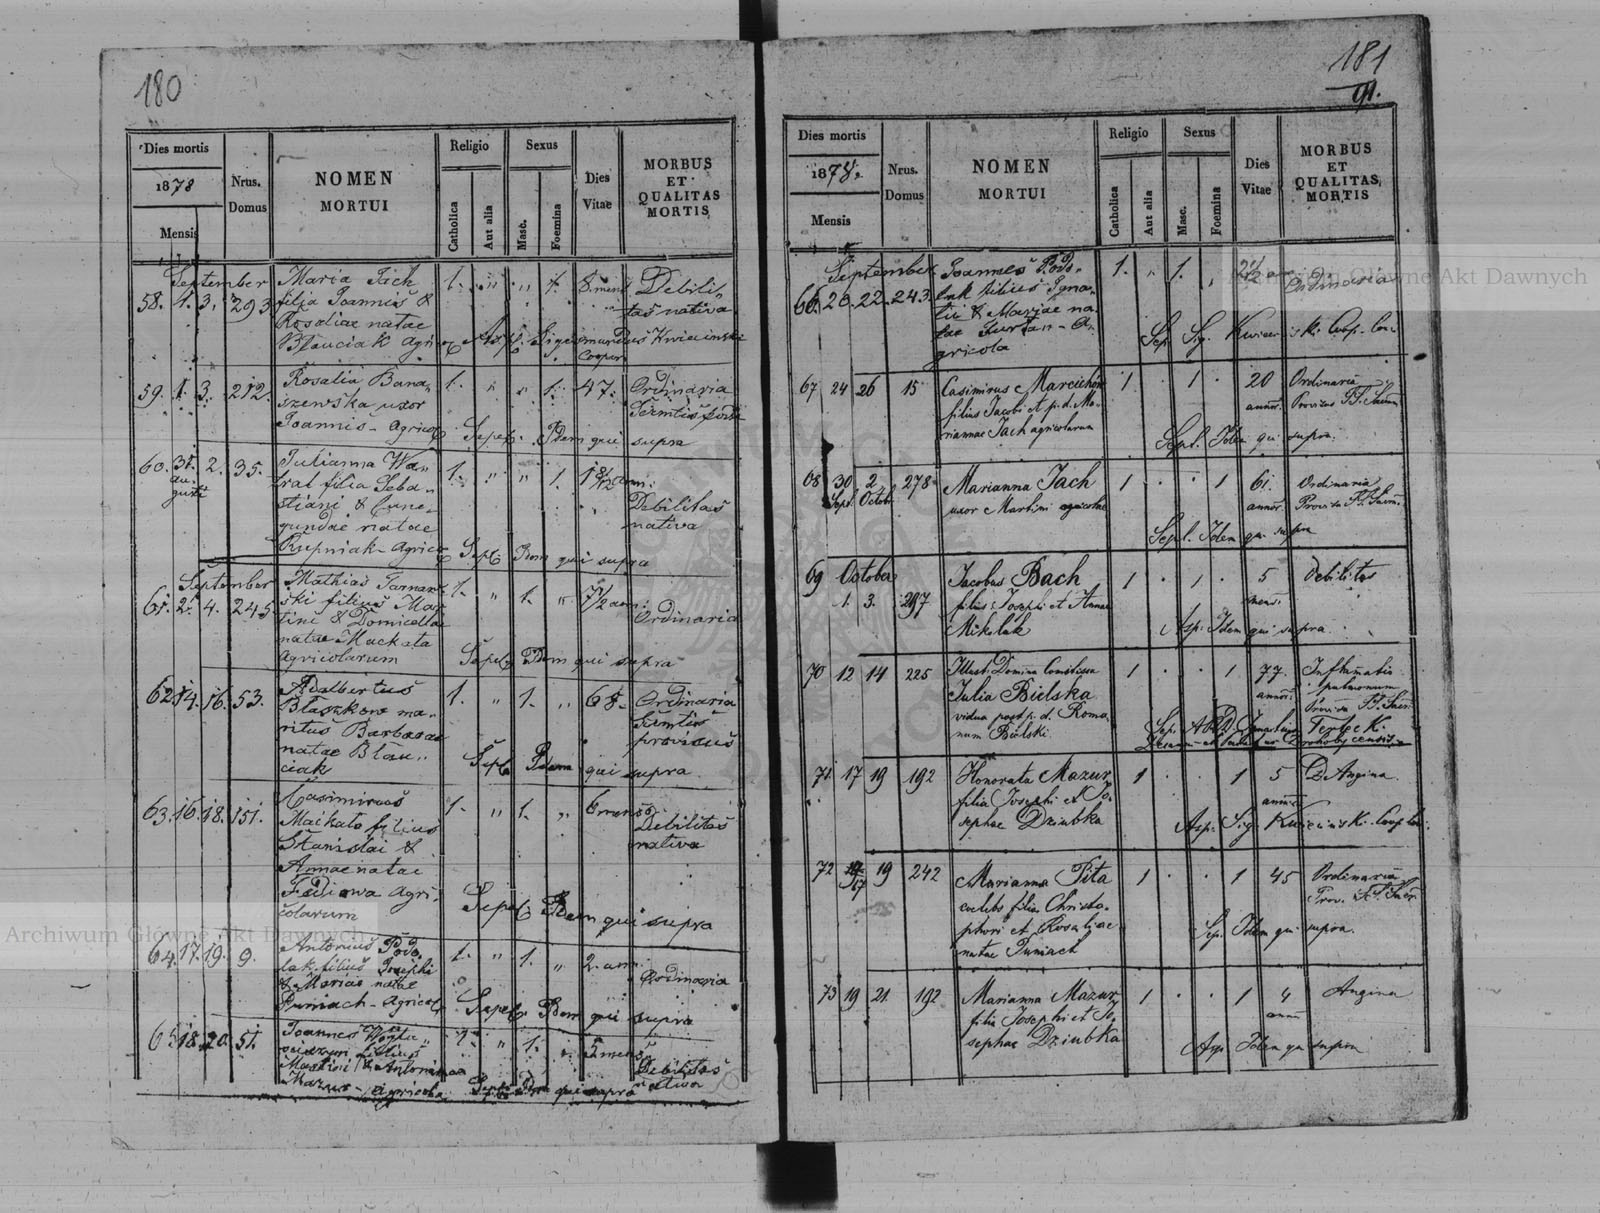 180
Dies mortis
1878
Mensis
Nrus.
Domus
NOMEN
MORTUI
Religio
Catholica
Aut alia
Sexus
Masc.
Foemina
Dies
Vitae
MORBUS
ET
QUALITAS
MORTIS
September
58. 1. 3. 293
Maria Jach
filia Joannis &
Rosaliae natae
1. " " 1. 8 mens
Debili-
tas nativa
Cooper
59. 1. 3. 212.
Rosalia Bana-
szewska uxor
Joannis - Agricol
1. " " 1. 47.
Ordinaria
Sepel. Idem qui supra
60. 31. 2. 35.
au-
gusti
Julianna Wa-
trat filia Seba-
stiani & Cune-
gundae natae
Rupniak - Agricol
1. " " 1.
Debilitas
nativa
Sepel. Idem qui supra
September
61. 2. 4. 245
Mathias Tarnaw-
ski filius Mar-
tini & Domicellae
natae Mackata
Agricolarum
1. " 1. "
Ordinaria
Sepel. Idem qui supra
62. 14. 16. 53.
Adalbertus
Błaszkow ma-
ritus Barbarae
natae Błau-
ciak
1. " 1. " 68.
Ordinaria
provisus
Sepel. Idem qui supra
63. 16. 18. 151.
Casimirus
Maikata filius
Stanislai &
Annae natae
Fediowa Agri-
colarum
1. " 1. " 6 mens
Debilitas
nativa
Sepel. Idem qui supra
64. 17. 19. 9.
Antonius Podo-
lak filius Josephi
& Mariae natae
Puniach - Agricol
1. " 1. " 2. ann:
Ordinaria
Sepel. Idem qui supra
65. 18. 20. 51.
Joannes
filius
Martini & Antoninae
Mazur - Agricola
1. " 1. "
Debilitas
nativa
Sepel. Idem qui supra
181
91.
Dies mortis
1878.
Mensis
Nrus.
Domus
NOMEN
MORTUI
Religio
Catholica
Aut alia
Sexus
Masc.
Foemina
Dies
Vitae
MORBUS
ET
QUALITAS
MORTIS
September
66. 20. 22. 243.
Joannes Podo-
lak filius Igna-
tii & Mariae na-
tae Jurtan - A-
gricola
1. " 1. " 2½
Ordinaria
Sep. Sig. Kwieciński Coop. Loc.
67 24 26 15
Casimirus Marcichów
filius Jacobi et p. d. Ma-
riannae Jach agricolarum
1 . 1 . 20
annor.
Ordinaria
Provisus SS. Sacrm
Sepl. Idem qui supra.
68 30 2 278
Sept. Octobr
Marianna Jach
uxor Martini agricolae
1 . . 1 61.
annor.
Ordinaria
Provisa SS. Sacrm.
Sepl. Idem qui supra
69 October
1. 3. 297
Jacobus Bach
filius Josephi et Annae
Mikolak
1 . 1 . 5
mens.
Debilitas
Asp. Idem qui supra
70 12 14 225
Illust. Domina Comitissa
Julia Bielska
vidua post p. d. Roma-
num Bielski
1 . . 1 77.
annor.
Inflamatio
pulmonum
Provisa SS. Sacr.
Terlecki
Drohobycensis
71. 17 19 192
Honorata Mazur
filia Josephi et Jo-
sephae Dziubka
1 . . 1 5
annor.
Angina
Asp. Sig. Kwieciński Coop. loc.
72 17 19 242
Marianna Pita
caelebs filia Christo-
phori et Rosaliae
natae Puniach
1 . . 1 45
Ordinaria
Prov. SS. Sacr.
Sep. Idem qui supra.
73 19 21. 192
Marianna Mazur
filia Josephi et Jo-
sephae Dziubka
1 . . 1 4
ann
Angina
Asp Idem qu supra
Archiwum Główne Akt Dawnych
Archiwum Główne Akt Dawnych